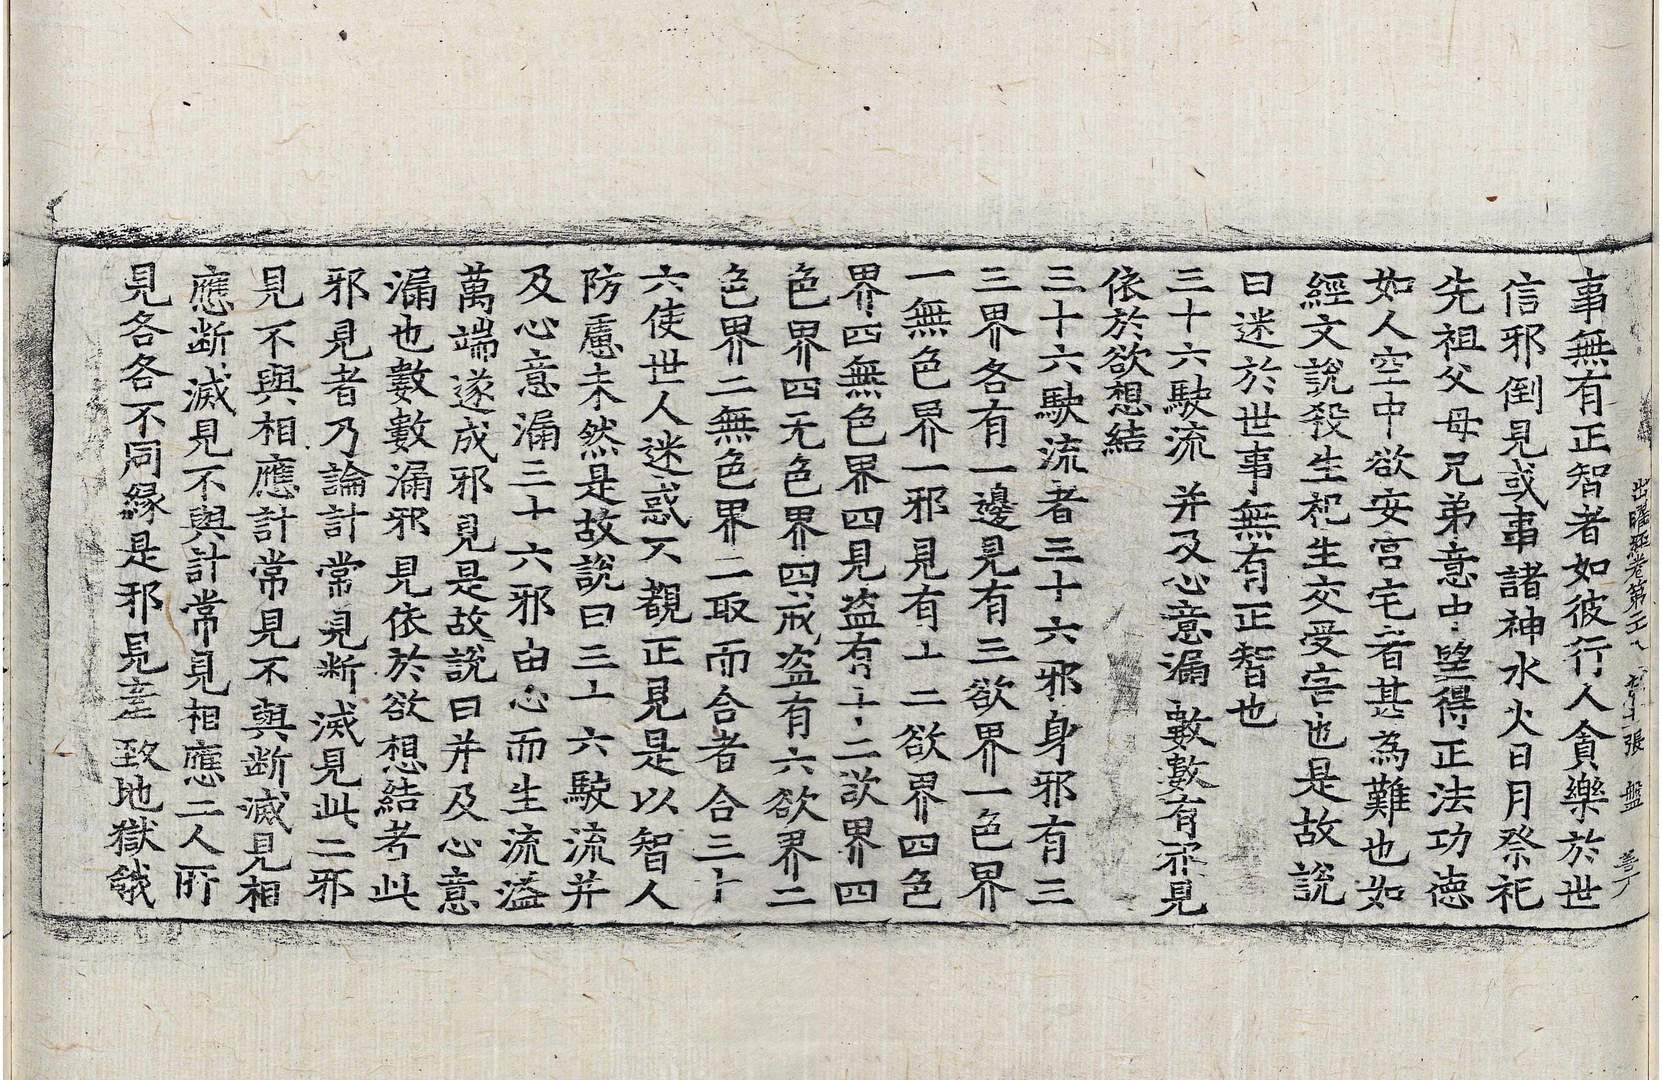 出曜經卷第 張 盤
事無有正智者如彼行人貪樂於世
信邪倒見或事諸神水火日月祭祀
先祖父母兄弟意中望得正法功徳
如人空中欲安宮宅者甚為難也如
經文說殺生祀生交受害也是故說
曰迷於世事無有正智也
三十六駛流 并及心意漏 數數有邪見
依於欲想結
三十六駛流者三十六邪身邪有三
三界各有一邊見有三欲界一色界
一無色界一邪見有十二欲界四色
界四無色界四見盗有十二欲界四
色界四无色界四戒盗有六欲界二
色界二無色界二取而合者合三十
六使世人迷惑不覩正見是以智人
防慮未然是故說曰三十六駛流并
及心意漏三十六邪由心而生流溢
萬端遂成邪見是故說曰并及心意
漏也數數漏邪見依於欲想結者此
邪見者乃論計常見断滅見此二邪
見不與相應計常見不與断滅見相
應断滅見不與計常見相應二人所
見各各不同縁是邪見壵致地獄餓